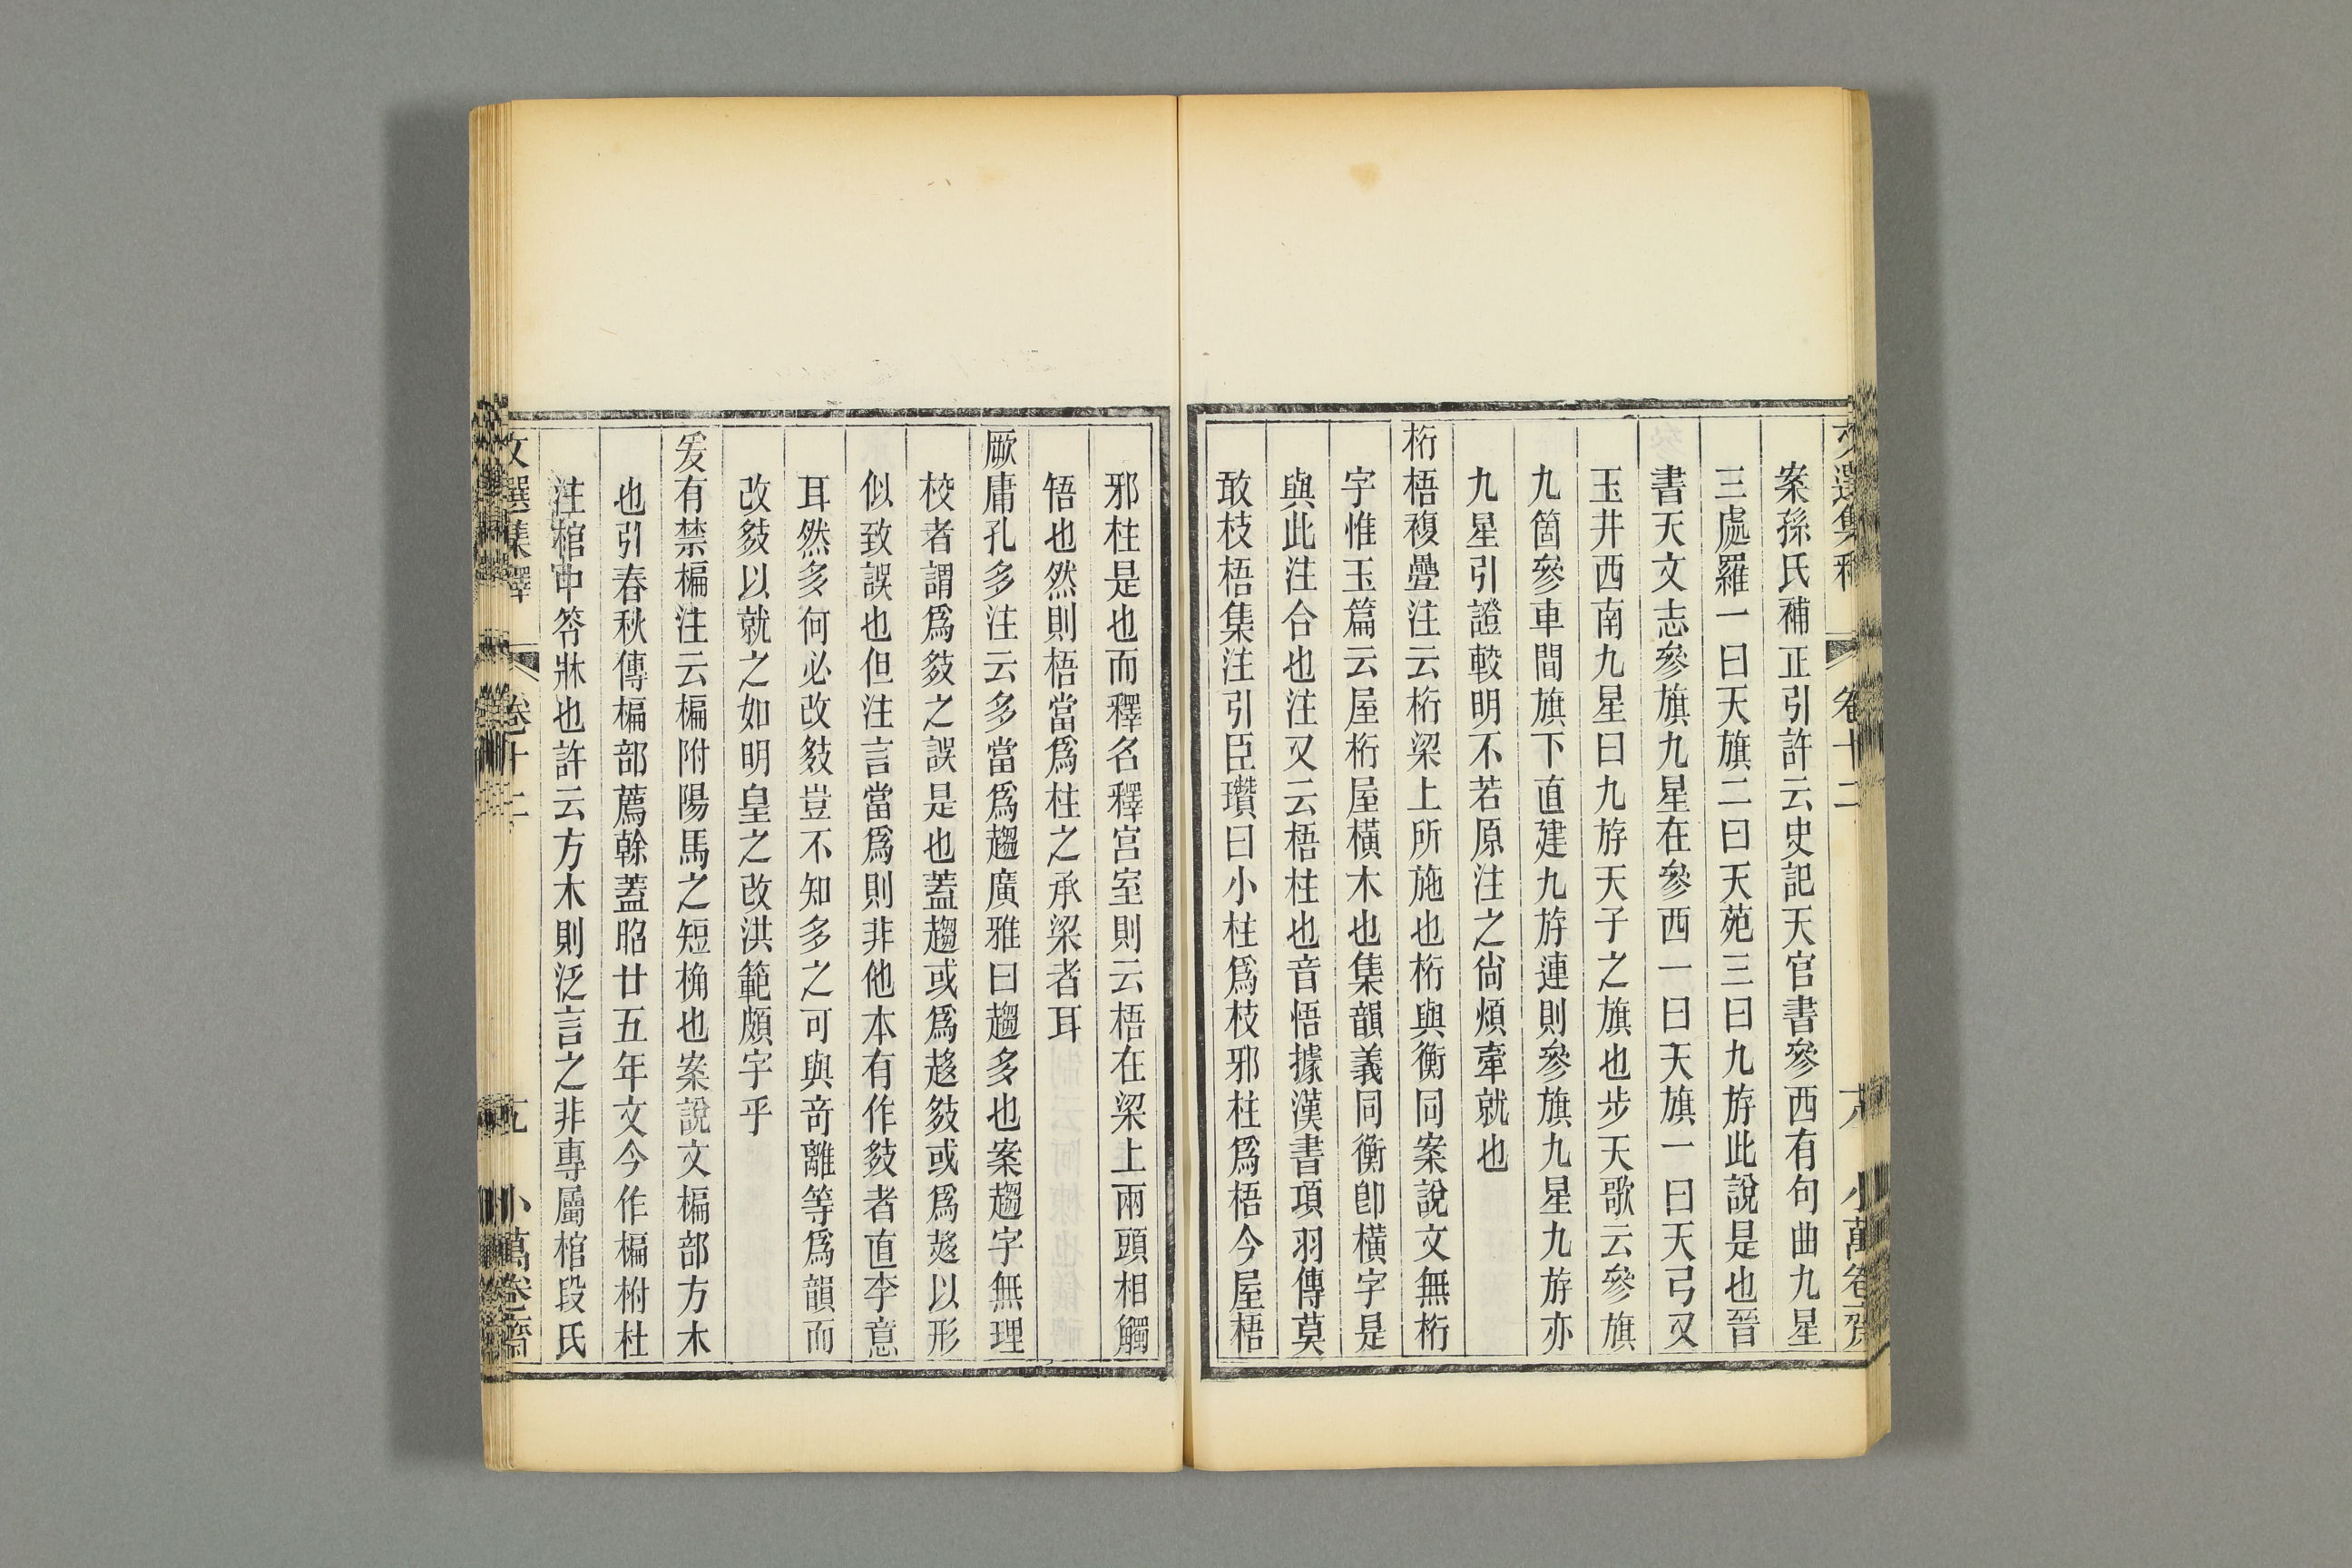 文選集釋 卷十二 小萬卷齋
案孫氏補正引許云史記天官書參西有句曲九星
三處羅一曰天旗二曰天苑三曰九斿此說是也晉
書天文志參旗九星在參西一曰天旗一曰天弓又
玉井西南九星曰九斿天子之旗也步天歌云參旗
九箇參車間旗下直建九斿連則參旗九星九斿亦
九星引證較明不若原注之尙煩牽就也
桁梧複疊注云桁梁上所施也桁與衡同案說文無桁
字惟玉篇云屋桁屋橫木也集韻義同衡卽橫字是
與此注合也注又云梧柱也音悟據漢書項羽傳莫
敢枝梧集注引臣瓚曰小柱爲枝邪柱爲梧今屋梧
邪柱是也而釋名釋宮室則云梧在梁上兩頭相觸
啎也然則梧當爲柱之承梁者耳
厥庸孔多注云多當爲趨廣雅曰趨多也案趨字無理
校者謂爲㚌之誤是也蓋趨或爲趍㚌或爲䓲以形
似致誤也但注言當爲則非他本有作㚌者直李意
耳然多何必改㚌豈不知多之可與奇離等爲韻而
改㚌以就之如明皇之改洪範頗字乎
爰有禁楄注云楄附陽馬之短桷也案說文楄部方木
也引春秋傳楄部薦榦蓋昭廿五年文今作楄柎杜
注棺中笭牀也許云方木則泛言之非專屬棺段氏
文選集釋 卷十二 小萬卷齋